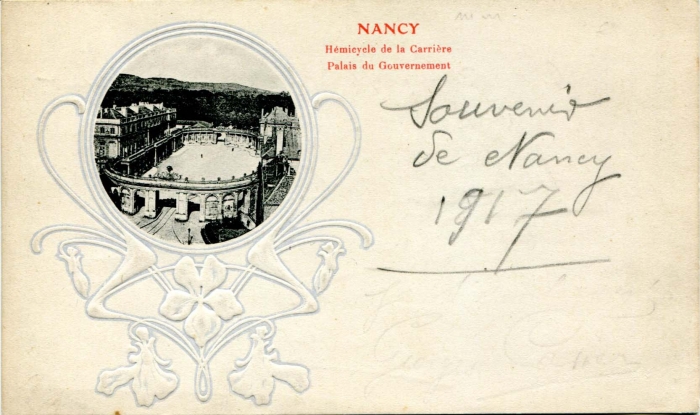 NANCY
Hémicycle de la Carrière
Palais du Gouvernement
Souvenir
de Nancy
1917